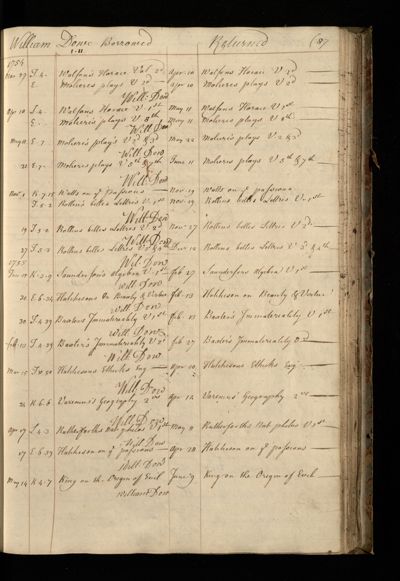 William Dow Borrowed Returned (87
1754
Mar 27 F.4. Watson's Horace Vol 2d Apr 10 Watsons Horace V 2d
E. Molieres plays V 2d Apr 10 Moliers plays V 2d
Will: Dow
Apr 10 F.4. Watsons Horace V. 1st May 11 Watsons Horace V 1st
E. Molieris plays V 8th May 11 Molieris plays V 8th
Will Dow
May 11 E.7. Molieris play's V 2d & 3d May 22 Molieris plays V. 2 & 3d
Will Dow
21 E.7. Molieres plays V 5th & 7th June 11 Molieres plays V 5th & 7th
Will: Dow
Nov. 1 K.7.15 Watts on ye passions Nov. 19 Watts on ye passions
F.5.2 Rollin's belles Lettres V. 1st Nov. 19 Rollins belles Lettres V. 1st
Will: Dow
19 F.5.2 Rollins belles Lettres V 2d Nov 27 Rollins belles Lettres V 2d
Will: Dow
27 F.5.2 Rollins belles Lettres V 3 & 4th Dec 12 Rollins belles Lettres V 3 & 4th
1755 Will Dow
Jan 17 K.3.9 Saunderson's algebra V. 1st Feb 27 Saundersons algebra V 1st
Will: Dow
30 E.6.34 Hutchesons On Beauty & Virtue Feb. 13 Hutcheson on Beauty & Virtue
30 F.4.29 Baxters Immateriality V 1st Feb 13 Baxter's Immateriality V 1st
Will Dow
Feb: 13 F.4.29 Baxter's Immateriality V 2d Feb 27 Baxters Immateriality V 2d
Will: Dow
Mar 15 Hutchesons Ethicks Eng Apr 10 Hutchesons Ethicks Eng
Will: Dow
22 K.6.6 Varenius's Geography 2 vs Apr 12 Varenius' Geography 2 vs
Will: Dow
Apr 17 L.4.3 Rutherforths Nat philos V 1st May 9 Rutherforths Nat. philos V 1st
Will Dow
17 E.6.39 Hutcheson on ye passions Apr 28 Hutcheson on ye passions
Will: Dow
May 14 K.4.7 King on the Origin of Evil June 9 King on the Origin of Evil
William Dow